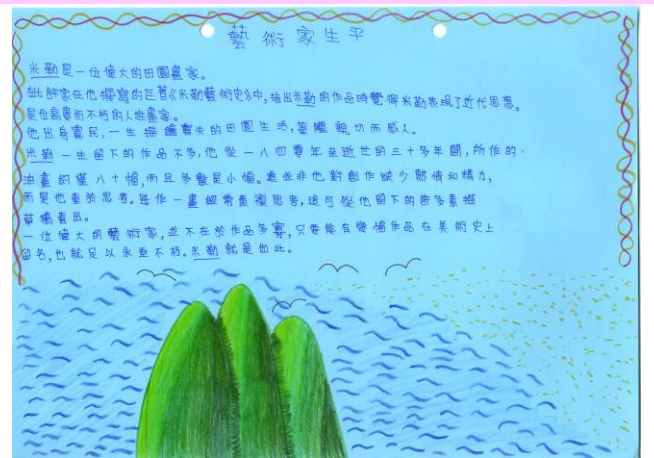 藝術家生平
米勒是一位偉大的田園畫家。
批評家在他撰寫的巨著《米勒藝術史》中,指出米勒的作品時覺得米勒表現了近代思想,
是位高貴而不朽的人性畫家。
他出身農民,一生描繪農夫的田園生活,筆觸親切而感人。
米勒一生留下的作品不多,他從一八四零年至逝世的三十多年間,所作的
油畫約僅八十幅,而且多數是小幅。這並非他對創作缺少熱情和精力,
而是他重於思考。每作一畫經常重複思考,這可從他留下的許多素描
草稿看出。
一位偉大的藝術家,並不在於作品多寡,只要能有幾幅作品在美術史上
留名,也就足以永垂不朽。米勒就是如此。